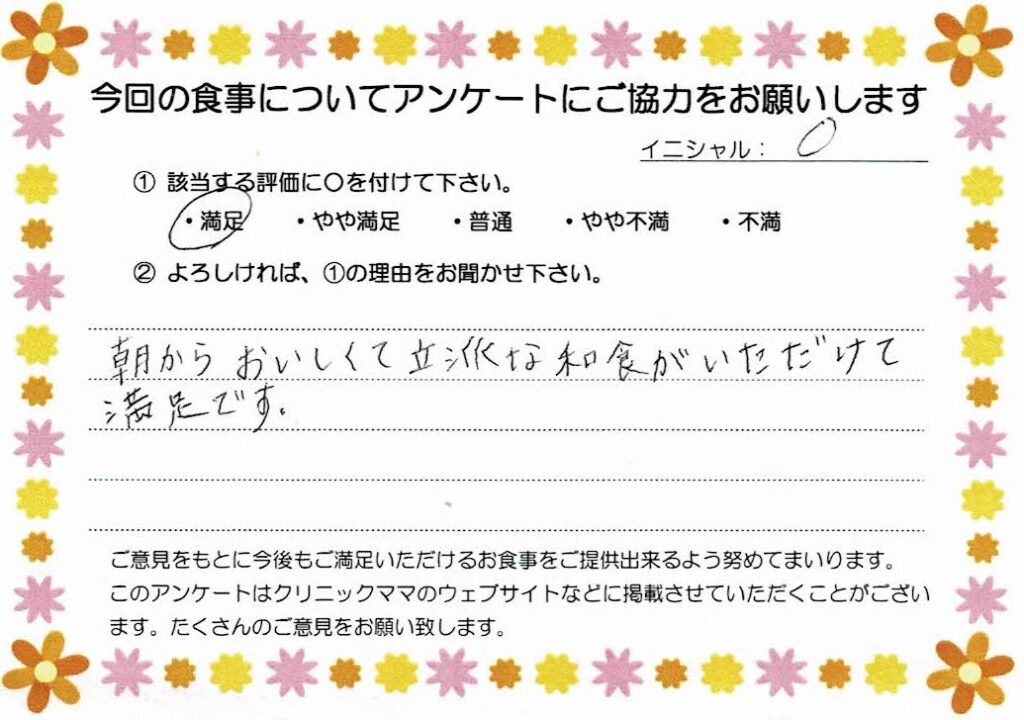 今回の食事についてアンケートにご協力をお願いします
イニシャル： O
① 該当する評価に〇を付けて下さい。
・満足 ・やや満足 ・普通 ・やや不満 ・不満
② よろしければ、①の理由をお聞かせ下さい。
朝からおいしくて立派な和食がいただけて
満足です。
ご意見をもとに今後もご満足いただけるお食事をご提供出来るよう努めてまいります。
このアンケートはクリニックママのウェブサイトなどに掲載させていただくことがござい
ます。たくさんのご意見をお願い致します。